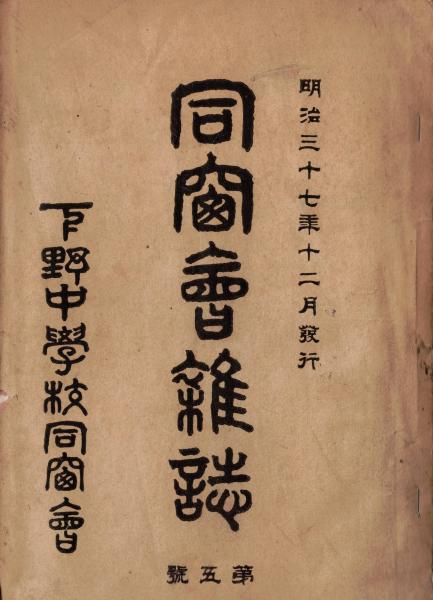 明治三十七年十二月發行
同窗會雜誌
下野中學校同窗會
第五號